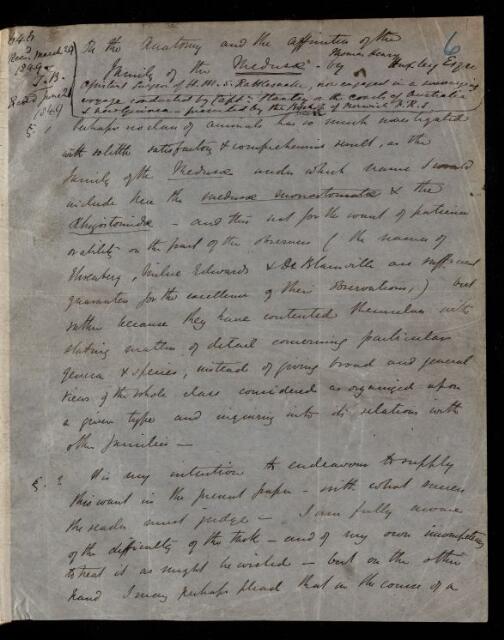 Recd March 24
1849
J.B.
Read June 21
1849
6
On the Anatomy and the affinities of the
Family of the Medusæ. by Thomas Henry Huxley Esqre
Assistant Surgeon of H.M.S. Rattlesnake, now engaged in a surveying
voyage conducted by Captn Stanley on the coasts of Australia
& New Guinea — presented by the Bishop of Norwich F.R.S.
Perhaps no class of animals has so much investigated
with so little satisfactory & comprehensive result, as the
Family of the Medusæ under which name I would
include here the medusæ monostomatæ & the
Rhizostomidæ — and this not for the want of patience
or ability on the part of the observers (the names of
Ehrenberg, Milne Edwards & De Blainville are sufficient
guarantee for the excellence of their observations,) but
rather because they have contented themselves with
stating matters of detail concerning particular
genera & species, instead of giving broad and general
views of the whole class considered as organized upon
a given type and inquiring into its relations with
other families —
§. 2 It is my intention to endeavour to supply
this want in the present paper — with what success
the reader must judge — I am fully aware
of the difficulty of the task — and of my own incompetency
to treat it as might be wished — but on the other
hand I may perhaps plead that in the course of a